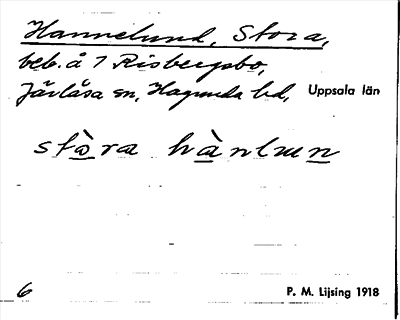 Hannelund, Stora,
beb. å 7 Risbergsbo,
Järlåsa sn, Hagunda hd, Uppsala län
stòra hànlun
6 P. M. Lijsing 1918